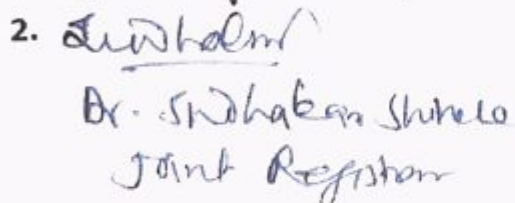 2.
Dr. Sudhakar Shinde
Joint Registrar